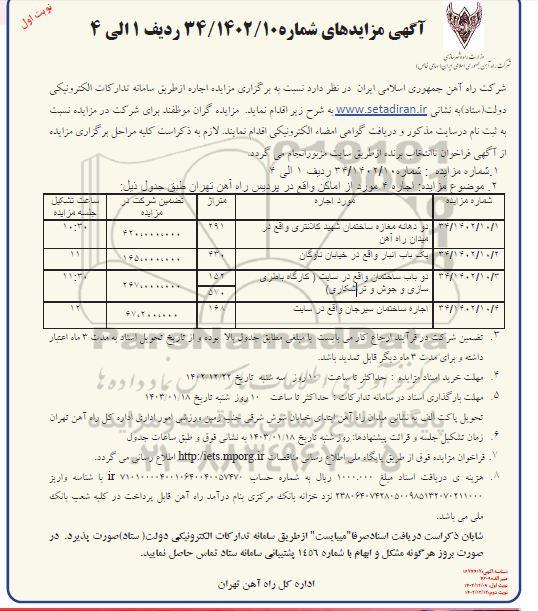 نوبت اول
آگهی مزایدهای شماره ۳۴/۱۴۰۲/۱۰ ردیف ۱ الی ۴
وزارت راه و شهرسازی
شرکت راه آهن جمهوری اسلامی ایران (سهامی خاص)
شرکت راه آهن جمهوری اسلامی ایران در نظر دارد نسبت به برگزاری مزایده اجاره ازطریق سامانه تدارکات الکترونیکی
دولت(ستاد)به نشانی www.setadiran.ir به شرح زیر اقدام نماید. مزایده گران موظفند برای شرکت در مزایده نسبت
به ثبت نام درسایت مذکور و دریافت گزاهی امضاء الکترونیکی اقدام نمایند. لازم به ذکراست کلیه مراحل برگزاری مزایده
از آگهی فراخوان تاانتخاب برنده ازطریق سایت مزبورانجام می گردد.
۱.شماره مزایده : شماره ۳۴/۱۴۰۲/۱۰ ردیف ۱ الی ۴
۲. موضوع مزایده: اجاره ۴ مورد از اماکن واقع در پردیس راه آهن تهران طبق جدول ذیل:
شماره مزایده مورد اجاره متراژ تضمین شرکت در مزایده ساعت تشکیل جلسه مزایده
۳۴/۱۴۰۲/۱۰/۱ دو دهانه مغازه ساختمان شهید کلانتری واقع در میدان راه آهن ۲۹۱ ۴۲۰۰۰۰۰۰۰۰۰ ۱۰:۳۰
۳۴/۱۴۰۲/۱۰/۲ یک باب انبار واقع در خیابان ناوگان ۴۳۰ ۱۶۵۰۰۰۰۰۰۰ ۱۱
۳۴/۱۴۰۲/۱۰/۳ دو باب ساختمان واقع در سایت ( کارگاه باطری سازی و جوش و تراشکاری) ۱۵۲ ۵۷۰ ۲۶۷۰۰۰۰۰۰۰ ۱۱:۳۰
۳۴/۱۴۰۲/۱۰/۴ اجاره ساختمان سیرجان واقع در سایت ۱۶۸ ۶۷۲۰۰۰۰۰۰ ۱۲
۳. تضمین شرکت در فرآیند ارجاع کار می بایست با مبلغی مطابق جدول بالا بوده و از تاریخ تحویل اسناد به مدت ۳ ماه اعتبار
داشته و برای مدت ۳ ماه دیگر قابل تمدید باشد.
۴. مهلت خرید اسناد مزایده : حداکثر تا ساعت ۱۰ روز سه شنبه تاریخ ۱۴۰۲/۱۲/۲۲
۵. مهلت بارگذاری اسناد در سامانه تدارکات : حداکثر تا ساعت ۱۰ روز شنبه تاریخ ۱۴۰۳/۰۱/۱۸
تحویل پاکت الف به نشانی میدان راه آهن ابتدای خیابان سوش شرقی جنب زمین ورزشی امور اداری اداره کل راه آهن تهران
۶. زمان تشکیل جلسه و قرائت پیشنهادها: روز شنبه تاریخ ۱۴۰۳/۰۱/۱۸ به نشانی فوق و طبق ساعات جدول
۷. فراخوان مزایده فوق از طریق پایگاه ملی اطلاع رسانی مناقصات http:/iets.mporg.ir اطلاع رسانی می گردد.
۸. هزینه ی دریافت اسناد مبلغ ۱۰۰۰.۰۰۰ ریال به شماره حساب
نزد خزانه بانک مرکزی بنام درآمد راه آهن قابل پرداخت در کلیه شعب بانک
ملی می باشد.
شایان ذکراست دریافت اسنادصرفا"میبایست" ازطریق سامانه تدارکات الکترونیکی دولت( ستاد)صورت پذیرد. در
صورت بروز هرگونه مشکل و ابهام با شماره ۱۴۵۶ پشتیبانی سامانه ستاد تماس حاصل نمایید.
اداره کل راه آهن تهران
ParsNamadData